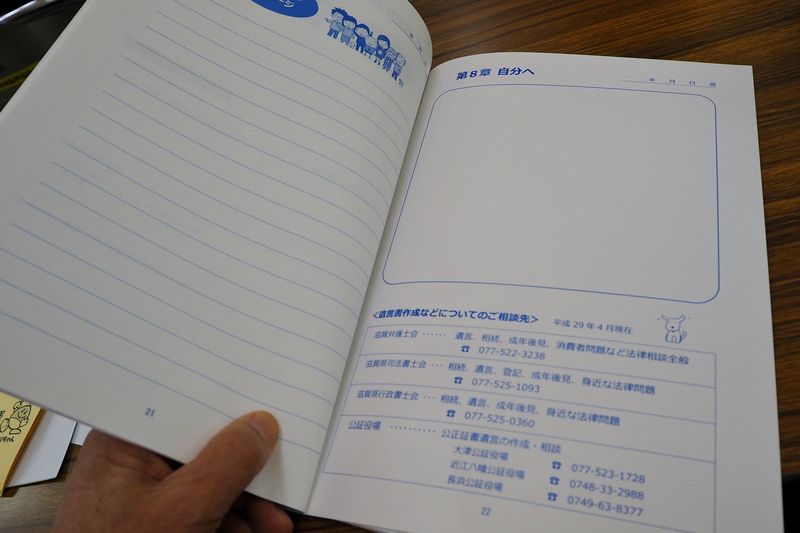 21
第8章 自分へ
年 月 日 歳
<遺言書作成などについてのご相談先> 平成29年4月現在
滋賀弁護士会 ‥‥‥ 遺言、相続、成年後見、消費者問題など法律相談全般
☎ 077-522-3238
滋賀県司法書士会 ‥‥ 相続、遺言、登記、成年後見、身近な法律問題
☎ 077-525-1093
滋賀県行政書士会 ‥‥ 相続、遺言、成年後見、身近な法律問題
☎ 077-525-0360
公証役場 ‥‥‥‥‥ 公正証書遺言の作成・相談
大津公証役場 ☎ 077-523-1728
近江八幡公証役場 ☎ 0748-33-2988
長浜公証役場 ☎ 0749-63-8377
22